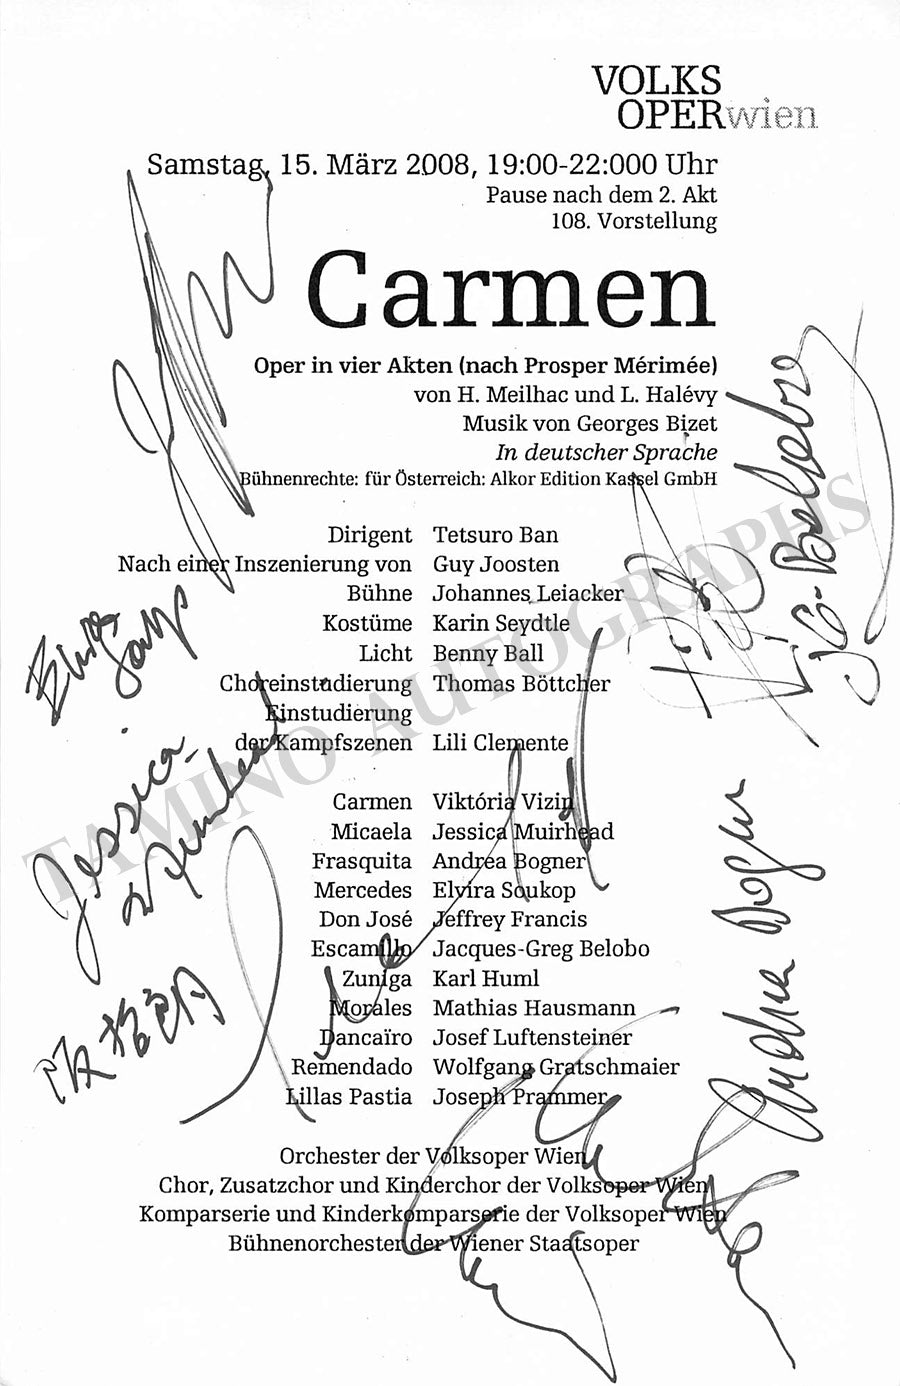 VOLKS
OPERwien
Samstag, 15. März 2008, 19:00-22:000 Uhr
Pause nach dem 2. Akt
108. Vorstellung
Carmen
Oper in vier Akten (nach Prosper Mérimée)
von H. Meilhac und L. Halévy
Musik von Georges Bizet
In deutscher Sprache
Bühnenrechte: für Österreich: Alkor Edition Kassel GmbH
Dirigent Tetsuro Ban
Nach einer Inszenierung von Guy Joosten
Bühne Johannes Leiacker
Kostüme Karin Seydtle
Licht Benny Ball
Choreinstudierung Thomas Böttcher
Einstudierung
der Kampfszenen Lili Clemente
Carmen Viktória Vizin
Micaela Jessica Muirhead
Frasquita Andrea Bogner
Mercedes Elvira Soukop
Don José Jeffrey Francis
Escamillo Jacques-Greg Belobo
Zuniga Karl Huml
Morales Mathias Hausmann
Dancaïro Josef Luftensteiner
Remendado Wolfgang Gratschmaier
Lillas Pastia Joseph Prammer
Orchester der Volksoper Wien
Chor, Zusatzchor und Kinderchor der Volksoper Wien
Komparserie und Kinderkomparserie der Volksoper Wien
Bühnenorchester der Wiener Staatsoper
TAMINO AUTOGRAPHS
Jessica
Muirhead
阪哲朗
Andrea Bogner
JG-Belobo